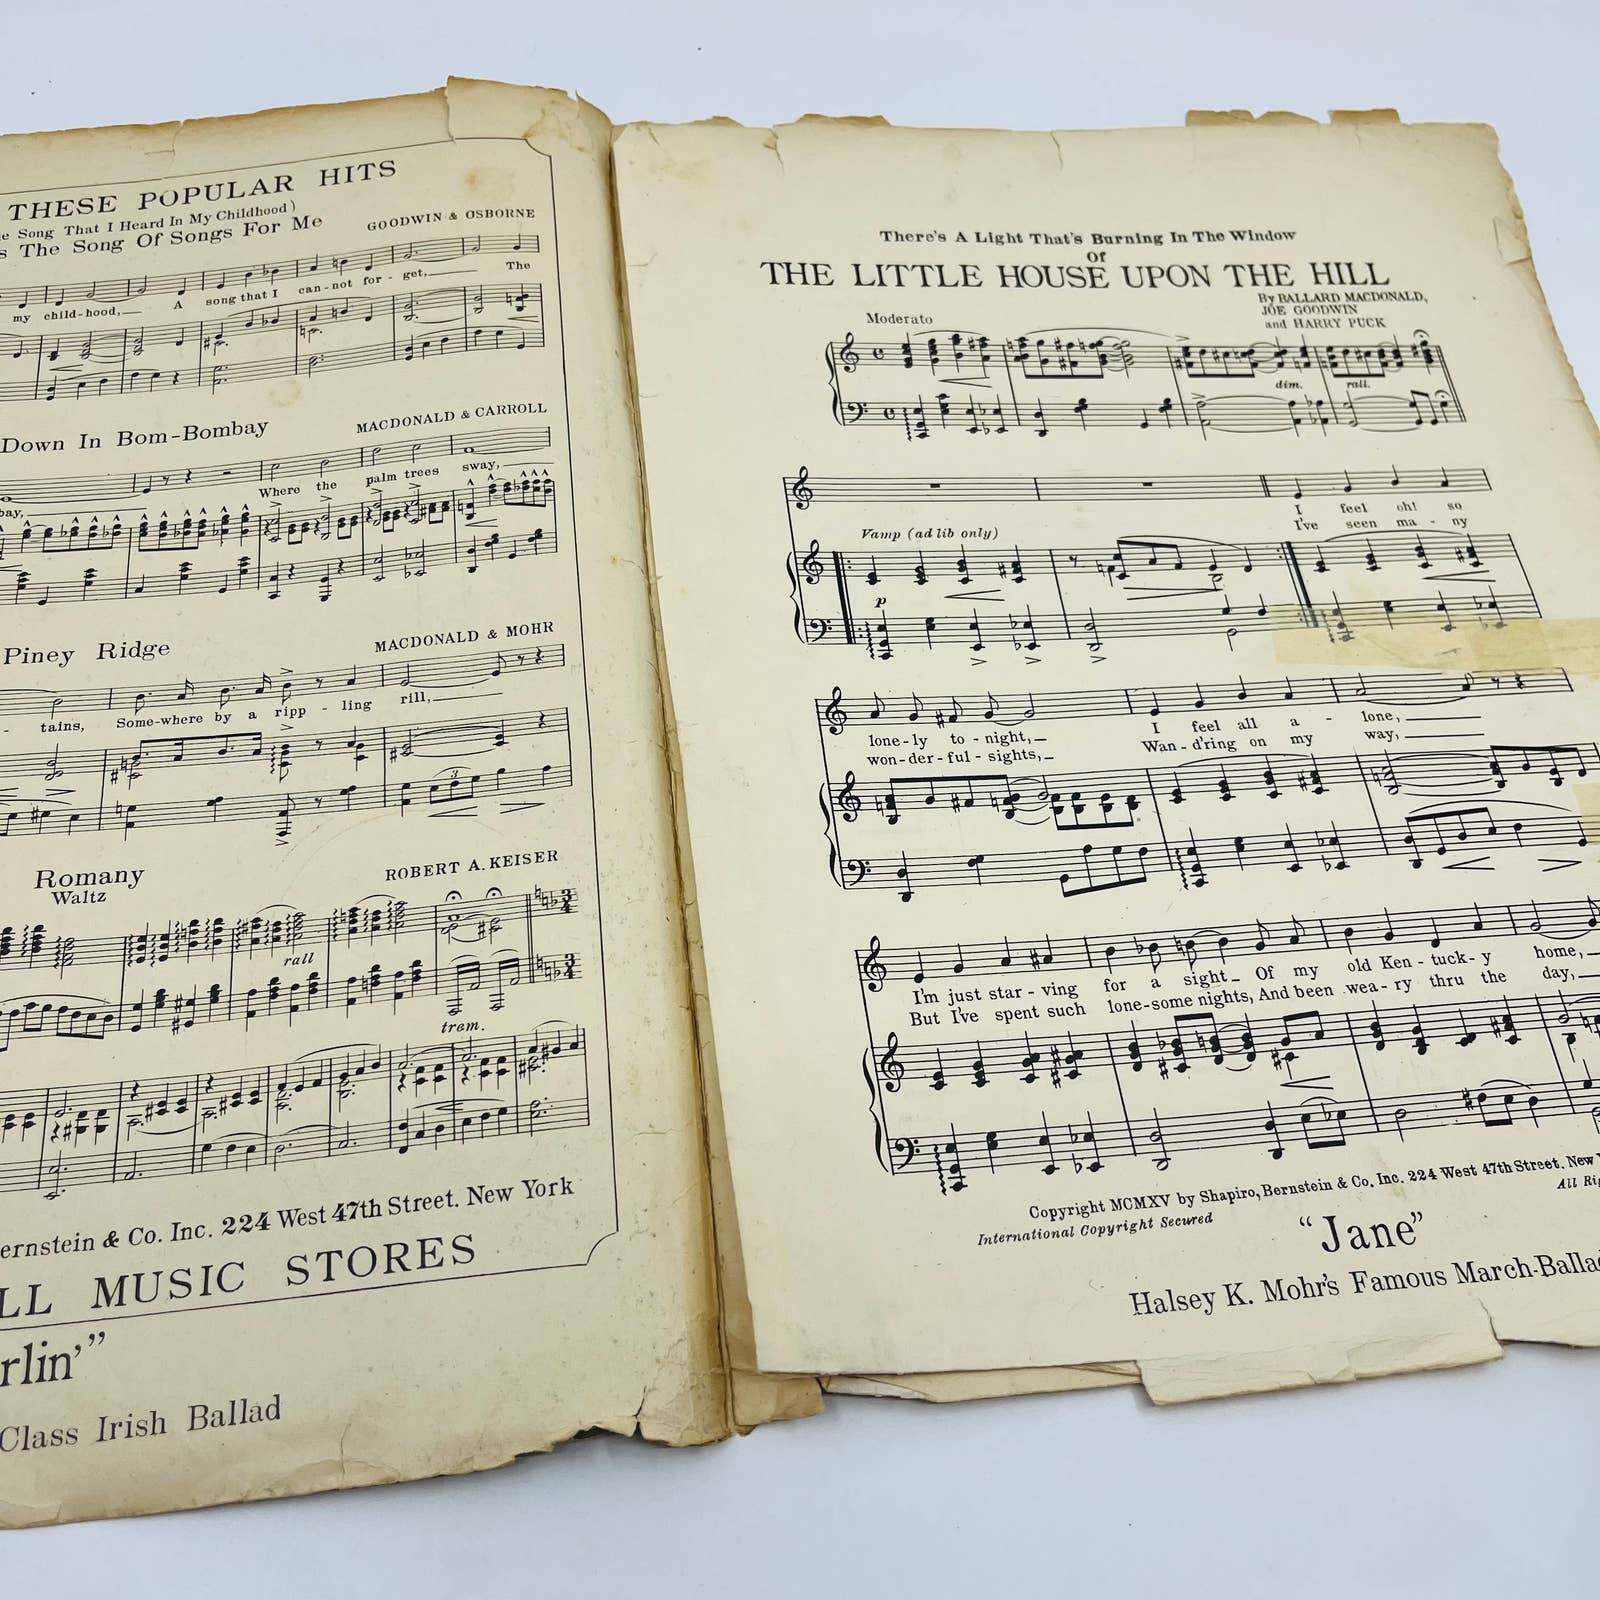 THESE POPULAR HITS
Song That I Heard In My Childhood)
The Song Of Songs For Me
GOODWIN & OSBORNE
my child-hood, A song that I can-not for-get, The
Down In Bom-Bombay
MACDONALD & CARROLL
bay, Where the palm trees sway,
Piney Ridge
MACDONALD & MOHR
- tains, Some-where by a ripp - ling rill,
Romany
Waltz
ROBERT A. KEISER
rall
trem.
& Co. Inc. 224 West 47th Street. New York
MUSIC STORES
Class Irish Ballad
There's A Light That's Burning In The Window
Of
THE LITTLE HOUSE UPON THE HILL
By BALLARD MACDONALD,
JOE GOODWIN
and HARRY PUCK
Moderato
dim. rall.
I feel oh! so
I've seen ma - ny
Vamp (ad lib only)
p
lone-ly to-night, I feel all a - lone,
won-der-ful-sights, Wan-d'ring on my way,
I'm just star-ving for a sight Of my old Ken-tuck-y home,
But I've spent such lone-some nights, And been wea-ry thru the day,
Copyright MCMXV by Shapiro, Bernstein & Co. Inc. 224 West 47th Street. New
International Copyright Secured
All
"Jane"
Halsey K. Mohr's Famous March-Ballad